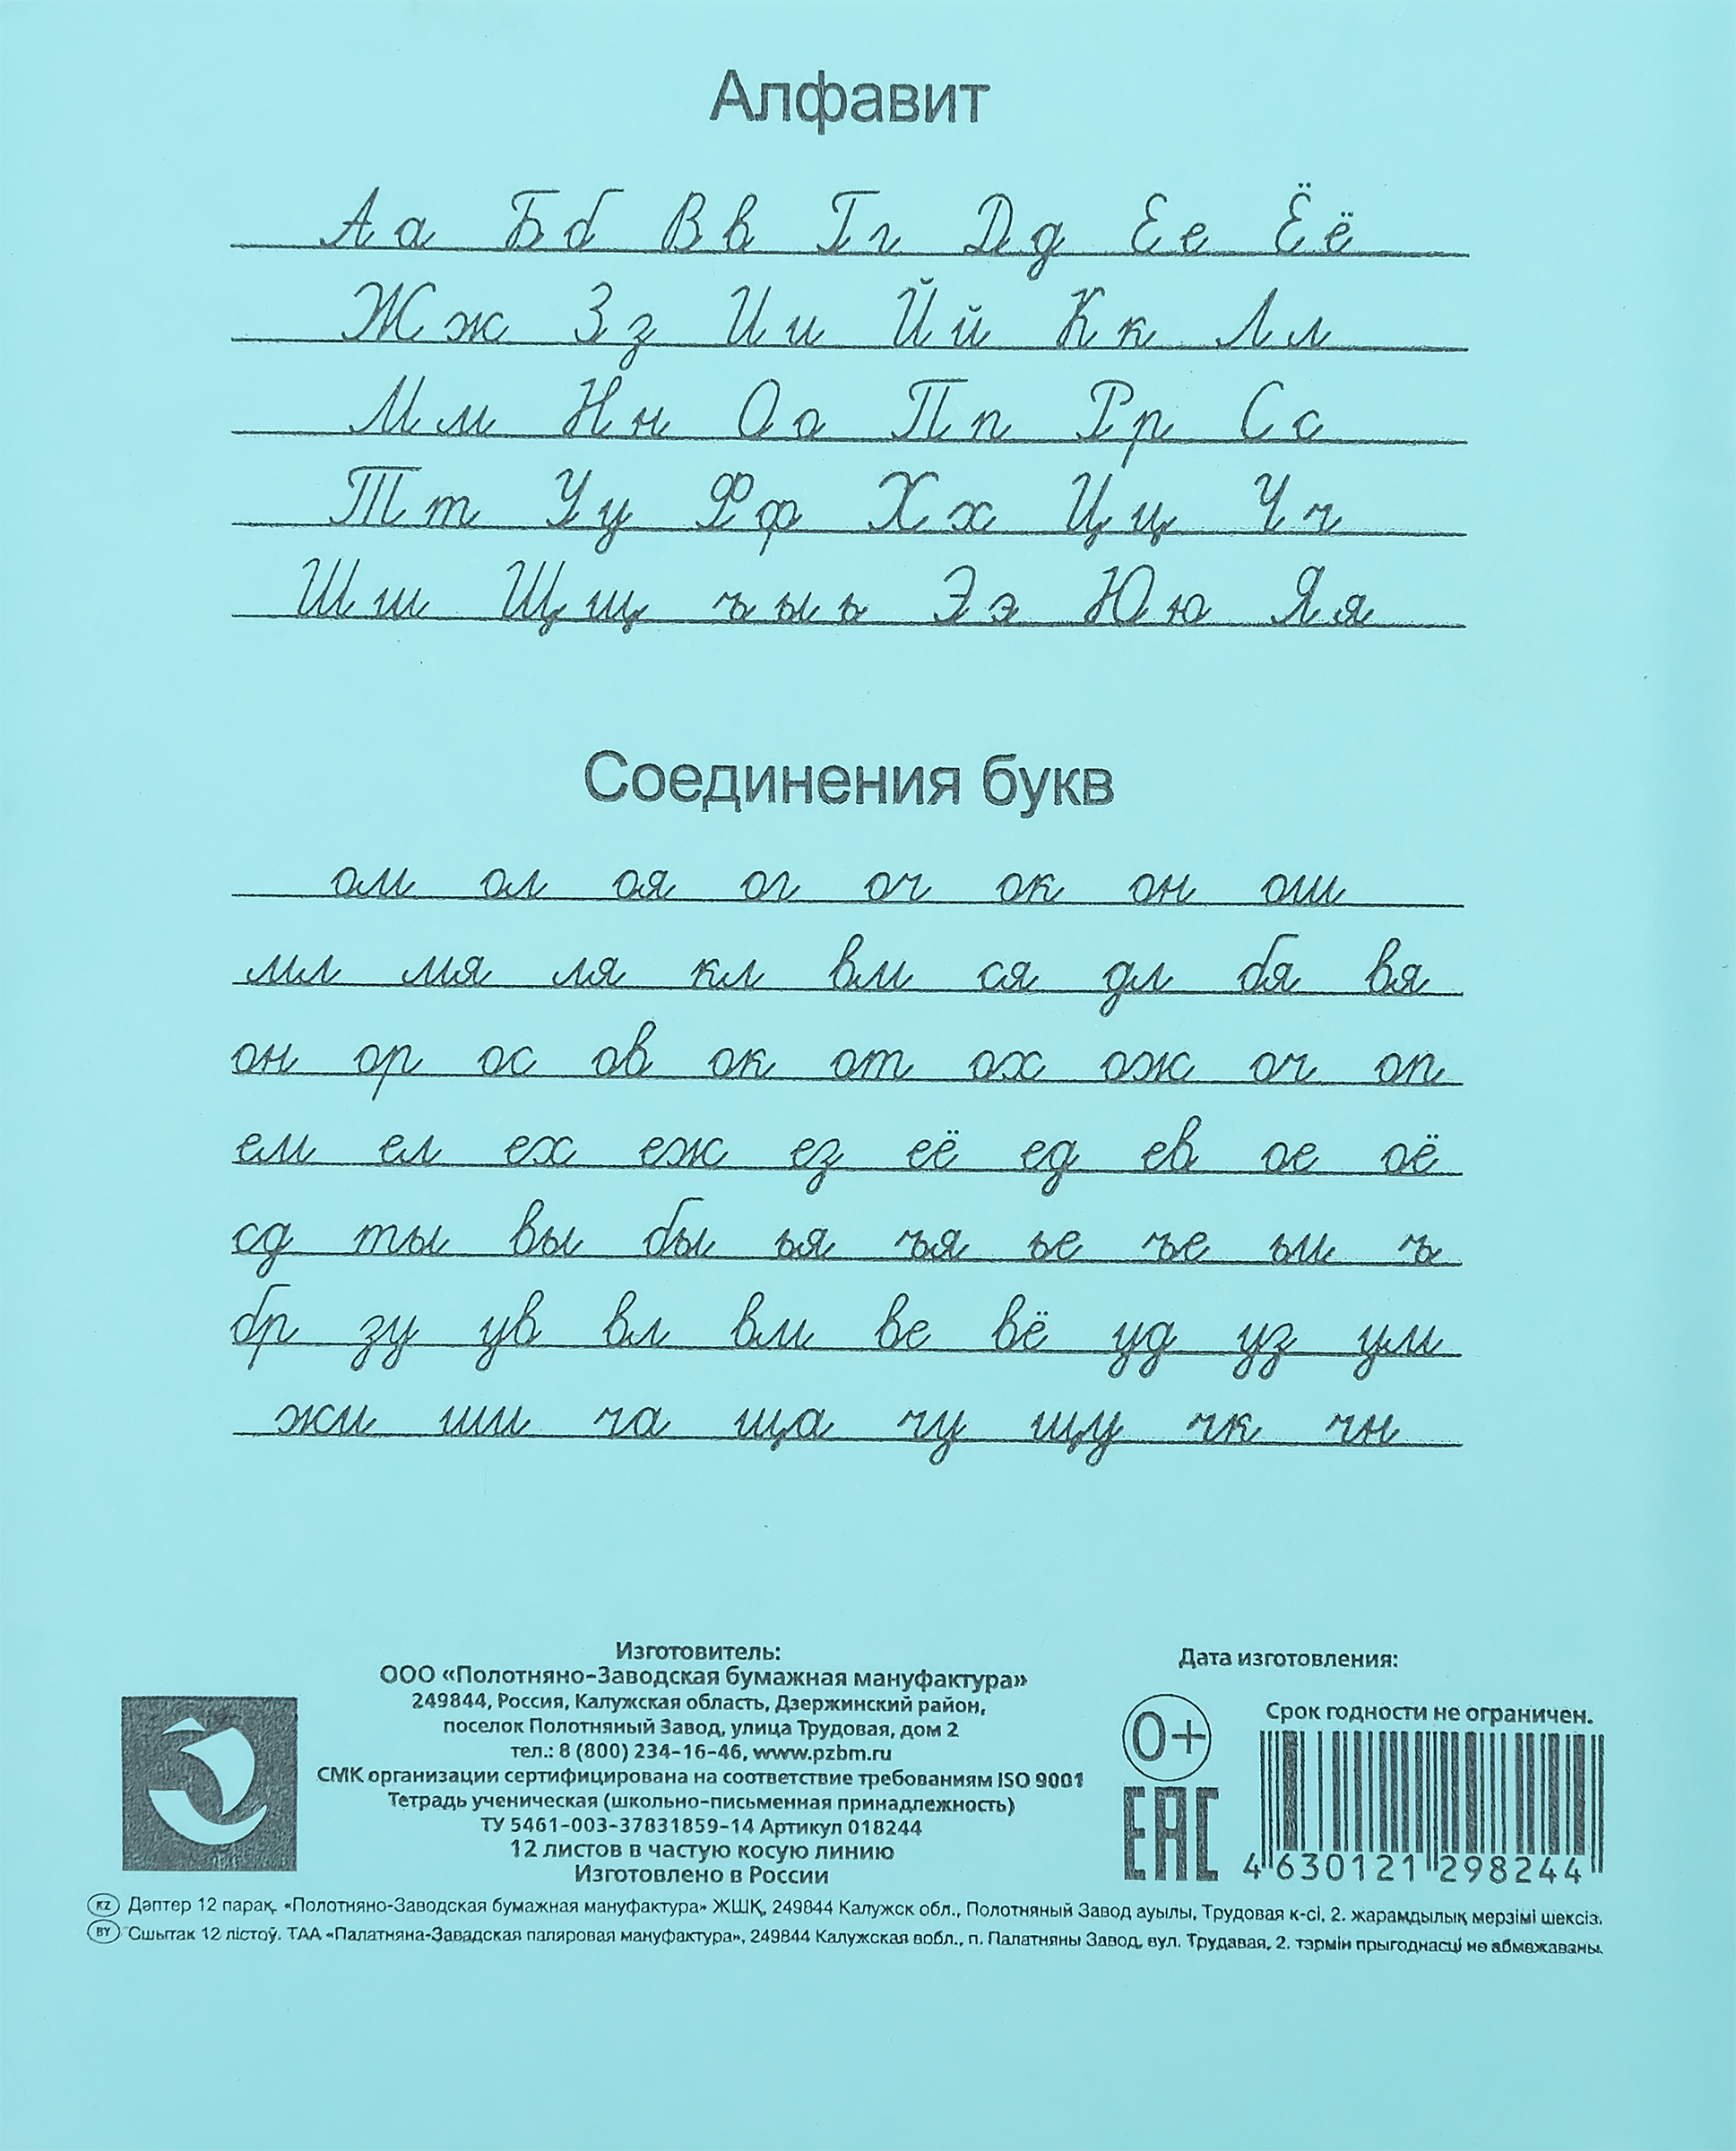 Алфавит
Аа Бб Вв Гг Дд Ее Ёё
Жж Зз Ии Йй Кк Лл
Мм Нн Оо Пп Рр Сс
Тт Уу Фф Хх Цц Чч
Шш Щщ ъ ы ь Ээ Юю Яя
Соединения букв
ом ол оя ог оч ок он ош
мл мя ля кл вм ся дл бя вя
он ор ос ов ок от ох ож оч оп
ем ел ех еж ез её ед ев ое оё
сд ты вы бы ья ъя ье ъе ьи ъ
бр зу ув вл вм ве вё уд уз ум
жи ши ча ща чу щу чк чн
Изготовитель:
ООО «Полотняно-Заводская бумажная мануфактура»
249844, Россия, Калужская область, Дзержинский район,
поселок Полотняный Завод, улица Трудовая, дом 2
тел.: 8 (800) 234-16-46, www.pzbm.ru
СМК организации сертифицирована на соответствие требованиям ISO 9001
Тетрадь ученическая (школьно-письменная принадлежность)
ТУ 5461-003-37831859-14 Артикул 018244
12 листов в частую косую линию
Изготовлено в России
Дата изготовления:
Срок годности не ограничен.
0+
EAC
4 630121 298244
KZ Дәптер 12 парақ. «Полотняно-Заводская бумажная мануфактура» ЖШҚ, 249844 Калужск обл., Полотняный Завод ауылы, Трудовая к-сі, 2. жарамдылық мерзімі шексіз.
BY Сшытак 12 лістоў. ТАА «Палатняна-Завадская папяровая мануфактура», 249844 Калужская вобл., п. Палатняны Завод, вул. Трудавая, 2. тэрмін прыгоднасці не абмежаваны.